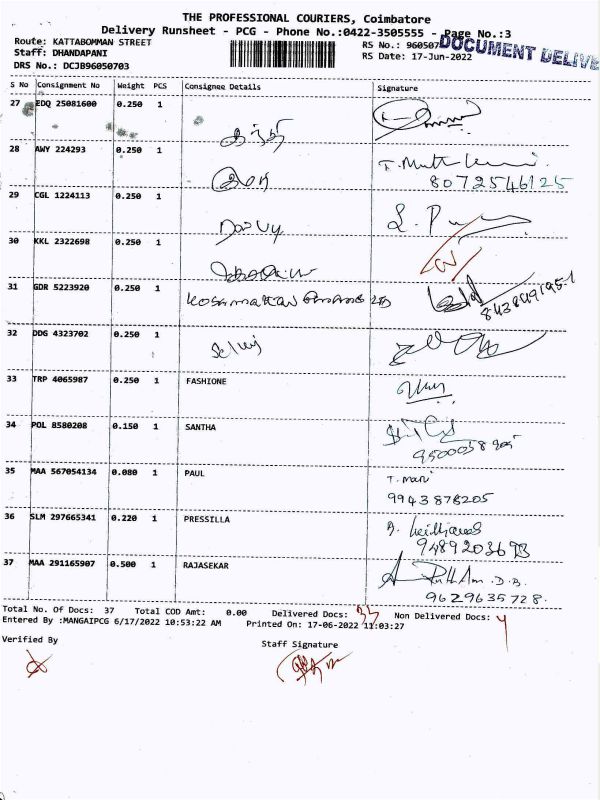 THE PROFESSIONAL COURIERS, Coimbatore
Delivery Runsheet - PCG - Phone No.:0422-3505555 - Page No.:3
Route: KATTABOMMAN STREET
Staff: DHANDAPANI
DRS No.: DCJB96050703
RS No.: 960507
RS Date: 17-Jun-2022
DOCUMENT DELIVE
S No Consignment No Weight PCS Consignee Details Signature
27 EDQ 25081600 0.250 1
28 AWY 224293 0.250 1
8072546125
29 CGL 1224113 0.250 1
30 KKL 2322698 0.250 1
31 GDR 5223920 0.250 1
32 DDG 4323702 0.250 1 Selvij
33 TRP 4065987 0.250 1 FASHIONE
34 POL 8580208 0.150 1 SANTHA
35 MAA 567054134 0.080 1 PAUL T. mari
9943878205
36 SLM 297665341 0.220 1 PRESSILLA
37 MAA 291165907 0.500 1 RAJASEKAR
9629635728.
Total No. Of Docs: 37 Total COD Amt: 0.00 Delivered Docs: 33 Non Delivered Docs: 4
Entered By :MANGAIPCG 6/17/2022 10:53:22 AM Printed On: 17-06-2022 11:03:27
Verified By
Staff Signature